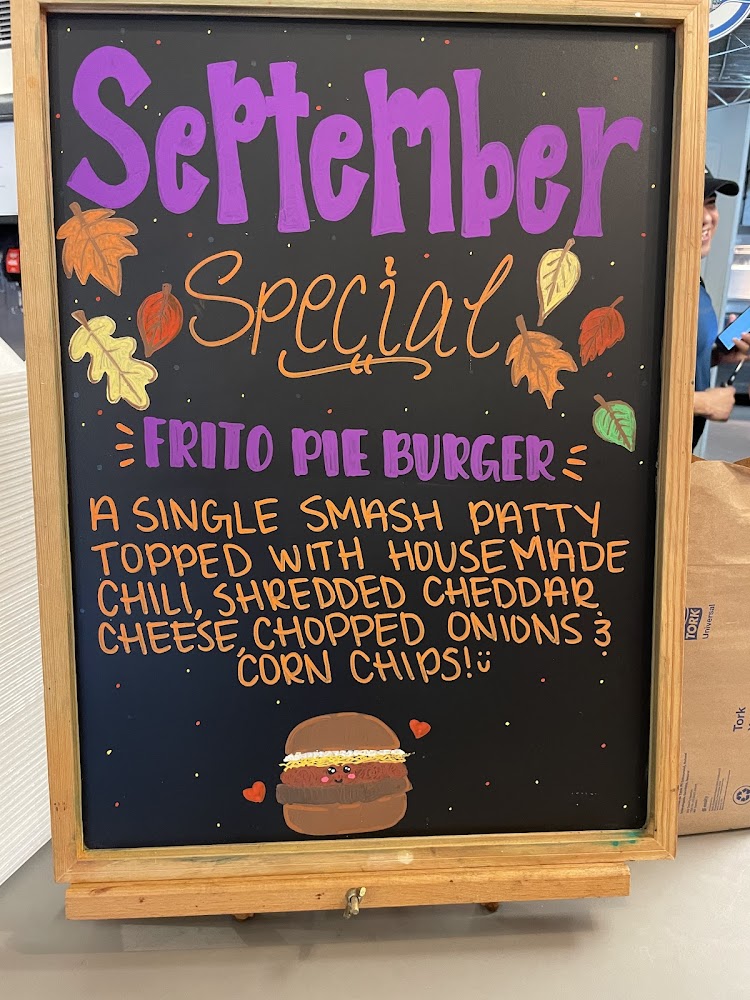 September
Special
FRITO PIE BURGER
A SINGLE SMASH PATTY
TOPPED WITH HOUSEMADE
CHILI, SHREDDED CHEDDAR
CHEESE, CHOPPED ONIONS &
CORN CHIPS!
TORK
Universal
Tork